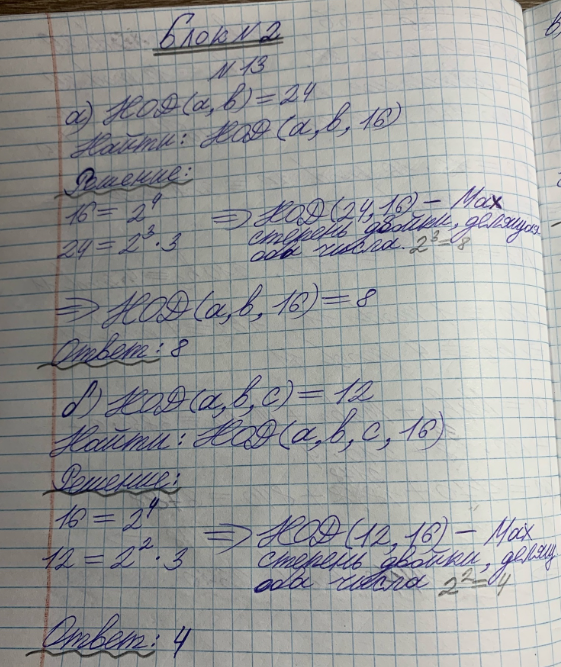 Блок №2
№13
а) НОД(а,в) = 24
Найти: НОД(а, в, 16)
Решение:
16 = 2⁴ ⇒ НОД(24,16) – Max
24 = 2³·3 степень двойки, делящая
оба числа. 2³=8
⇒ НОД(а,в,16) = 8
Ответ: 8
б) НОД(а,в,с) = 12
Найти: НОД(а,в,с,16)
Решение:
16 = 2⁴ ⇒ НОД(12,16) – Max
12 = 2²·3 степень двойки, делящ
оба числа 2²=4
Ответ: 4